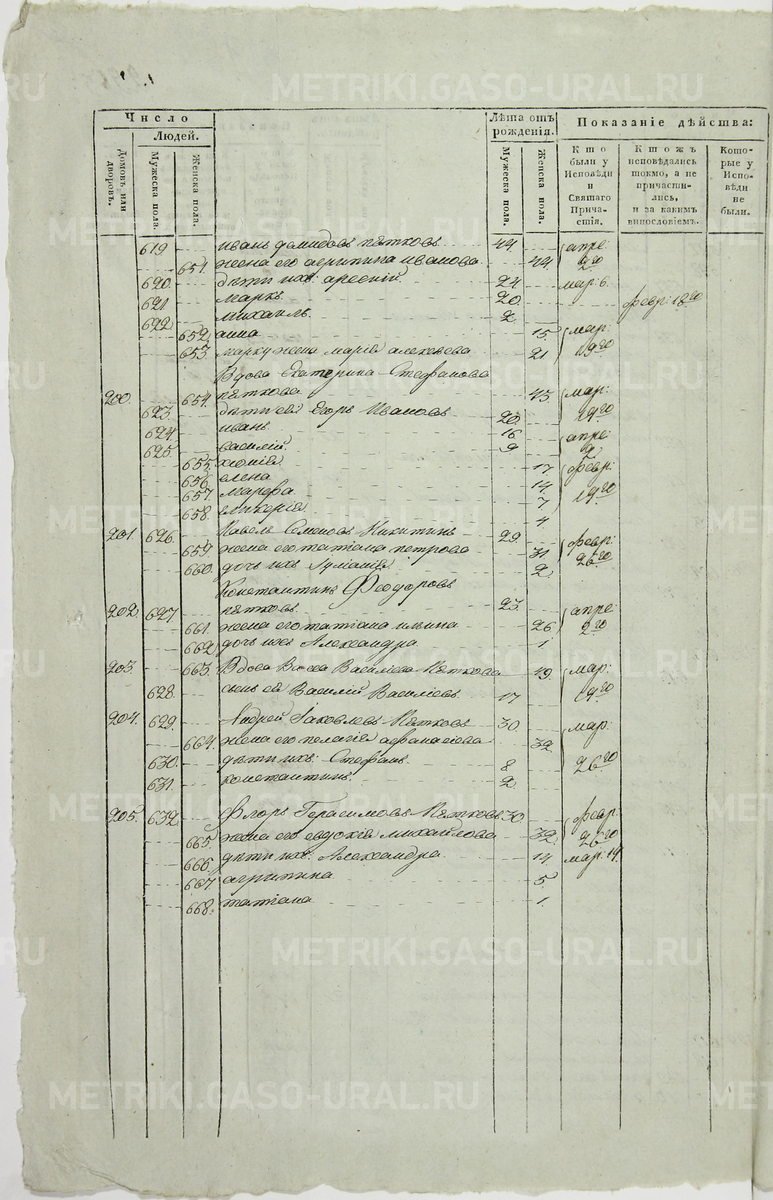 METRIKI.GASO-URAL.RU
Число
Людей.
Лѣта отъ рожденія.
Показаніе дѣйства:
Домовъ или дворовъ.
Мужеска пола.
Женска пола.
Мужеска пола.
Женска пола.
Кто были у Исповѣди и Святаго Причастія.
Ктожъ исповѣдались токмо, а не причастились, и за какимъ винословіемъ.
Которые у Исповѣди не были.
619 иванъ демидовъ пятковъ 44 апре:
651. жена его агрипина иванова 44. 2го
620. дѣти ихъ: арсений. 24 мар: 6.
621 маркъ 20. февр: 18го
622 михаилъ. 2
652. анна 15. мар:
653 марку жена марія алексѣева 21 19го
Вдова Екатерина Стефанова
200. 654. пяткова 43 мар:
623. дѣти ея Егоръ Ивановъ 20. 19го
624 иванъ 16 апре:
625. василий. 9 2
655. хіонія 17 февр:
656. елена 14.
657. марфа. 7 19го
658. гликерія 4
201 626. Павелъ Семеновъ Никитинъ 29.
659. жена его татіана петрова 31 февр:
660. дочь ихъ Іуліанія 2. 26го
Константинъ Феодоровъ
202. 627 пятковъ. 23 апре:
661. жена его татіана ильина 26 2го
662 дочь ихъ Александра 1
203. 663. Вдова Васса Василіева Пяткова 49. мар:
628. сынъ ея Василій Василіевъ 17 19го
204. 629. Андрей Іаковлевъ Пятковъ 30 мар.
664. жена его пелагія афанасіева 32
630. дѣти ихъ: Стефанъ. 8 26го
631. константинъ 2.
205. 632. Флоръ Герасимовъ Пятковъ 30 февр:
665 жена его евдокія михаилова 32. 26го
666. дѣти ихъ: Александра. 14. мар: 19.
667 агрипина 5.
668. татіана 1.